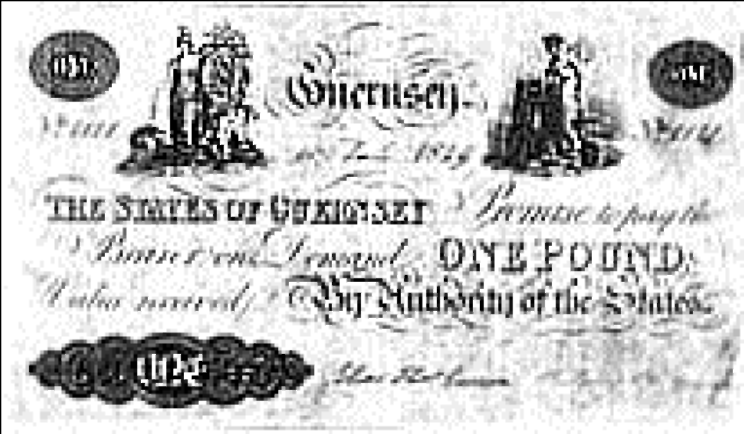 ONE
ONE
Guernsey.
THE STATES OF GUERNSEY Promise to pay the
Bearer on Demand ONE POUND.
Value received, By Authority of the States.
ONE